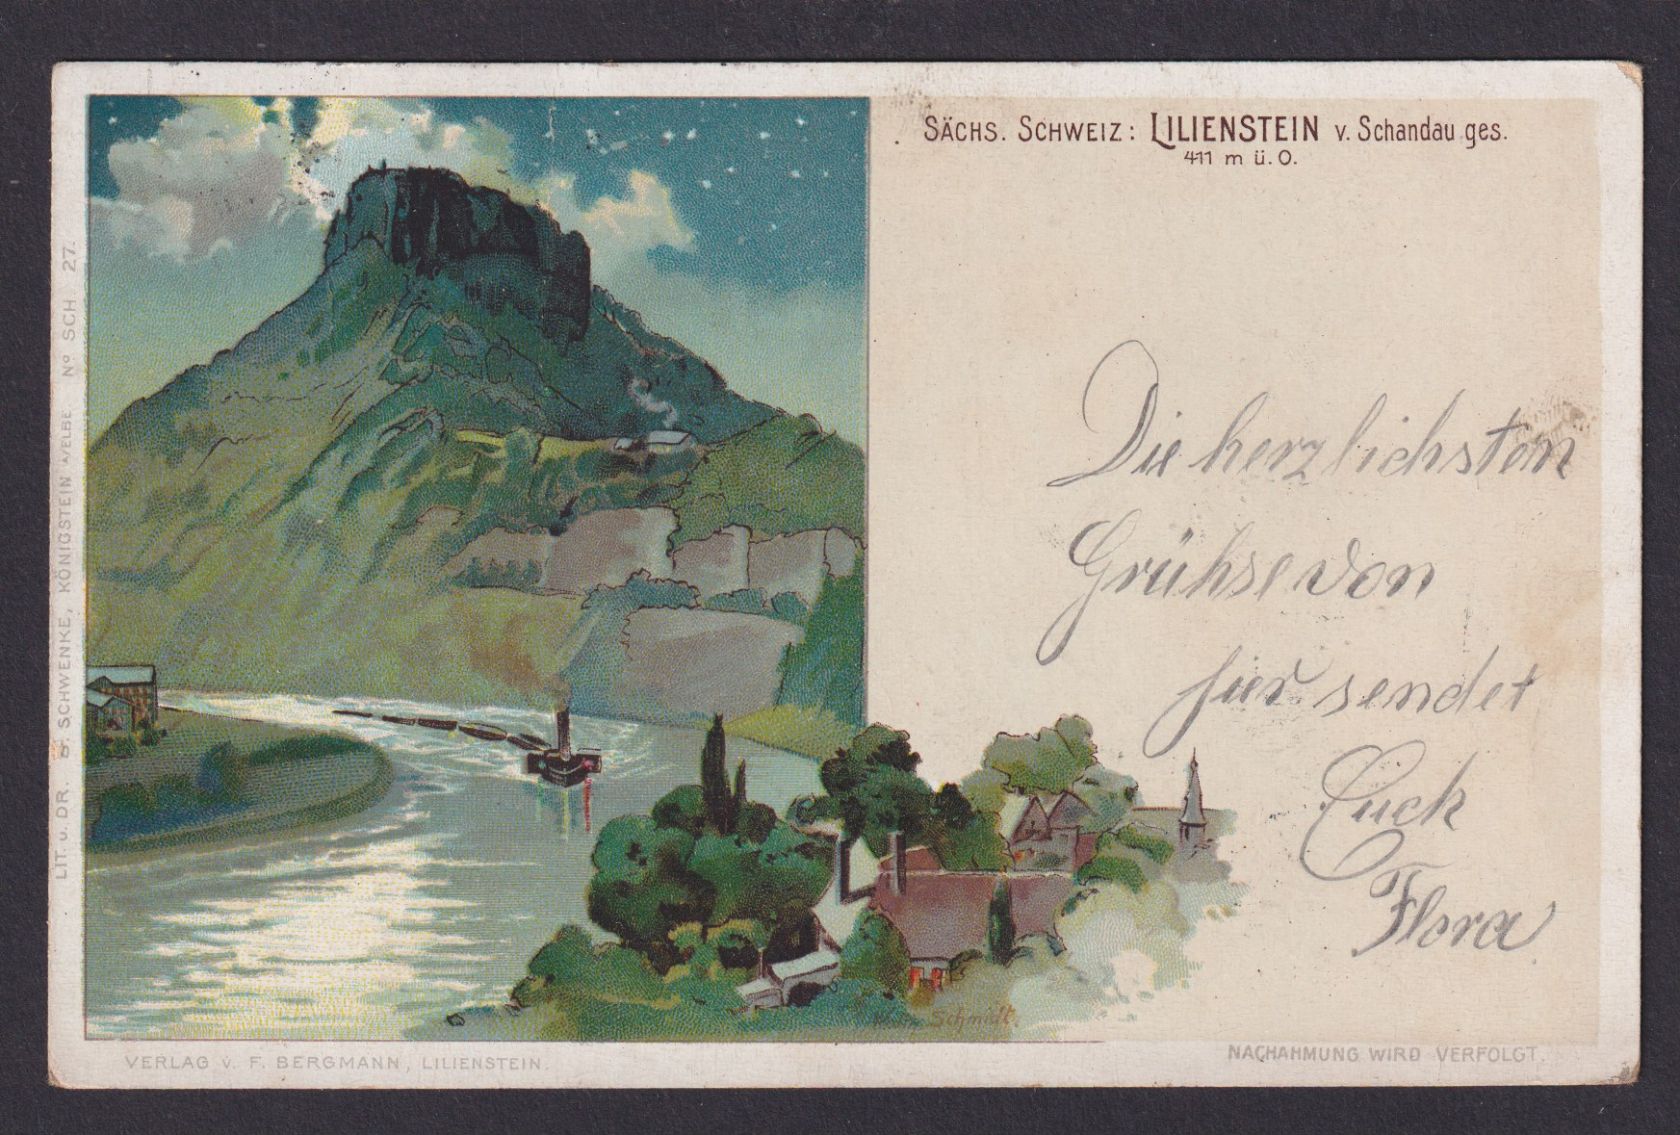 SÄCHS. SCHWEIZ: LILIENSTEIN v. Schandau ges.
411 m ü. O.
Die herzlichsten
Grühse von
hier sendet
Euch
Flora
Schmidt.
VERLAG v. F. BERGMANN, LILIENSTEIN.
NACHAHMUNG WIRD VERFOLGT.
LIT. u. DR. B. SCHWENKE, KÖNIGSTEIN A/ELBE No SCH. 27.